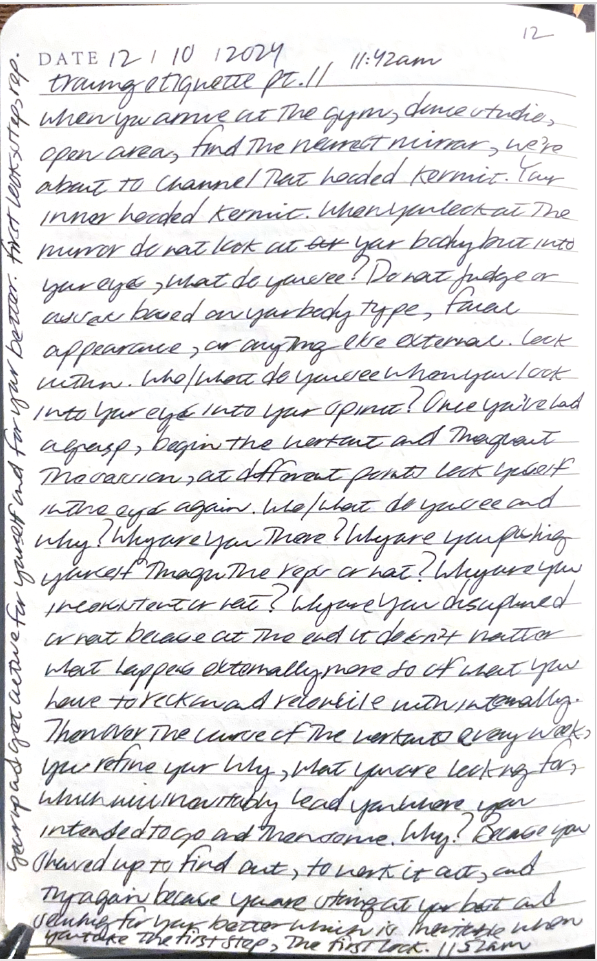 12
DATE 12 | 10 | 2024 11:42am
training etiquette pt. 11
when you arrive at the gym, dance studio,
open area, find the nearest mirror, we're
about to channel that hooded Kermit. Your
inner hooded Kermit. When you look at the
mirror do not look at your body but into
your eyes, what do you see? Do not judge or
assess based on your body type, facial
appearance, or anything else external. Look
within. Who/what do you see when you look
into your eyes into your spirit? Once you've had
a grasp, begin the workout and throughout
the session, at different points look yourself
in the eyes again. Who/What do you see and
why? Why are you there? Why are you pushing
yourself through the reps or not? Why are you
inconsistent or not? Why are you disciplined
or not because at the end it doesn't matter
what happens externally more so of what you
have to reckon and reconcile with internally.
Then over the course of the workouts every week,
you refine your why, what you are looking for,
which will inevitably lead you where you
intended to go and then some. Why? Because you
showed up to find out, to work it out, and
try again because you are at your best and
for your better which is inevitable when
you take the first step, the first look. 11:52am
Gear up and get active for yourself and for your better. First look, step, rep.